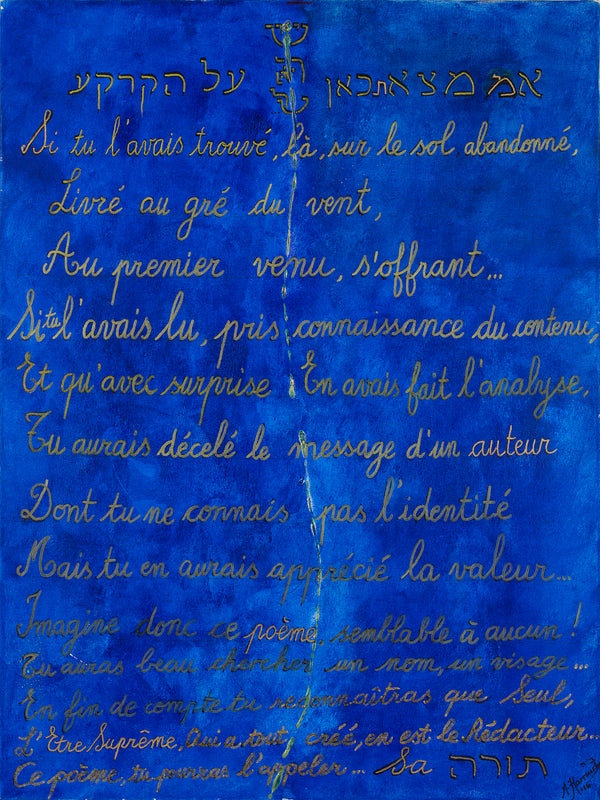 אמ מצאתכאן על הקרקע
Si tu l'avais trouvé, là, sur le sol abandonné,
Livré au gré du vent,
Au premier venu, s'offrant...
Si tu l'avais lu, pris connaissance du contenu,
Et qu'avec surprise En avais fait l'analyse,
Tu aurais décelé le message d'un auteur
Dont tu ne connais pas l'identité
Mais tu en aurais apprécié la valeur...
Imagine donc ce poème, semblable à aucun !
Tu auras beau chercher un nom, un visage...
En fin de compte tu reconnaîtras que Seul,
L'Etre Suprême, Qui a tout créé, en est le Rédacteur...
Ce poème, tu pourras l'appeler... Sa תורה